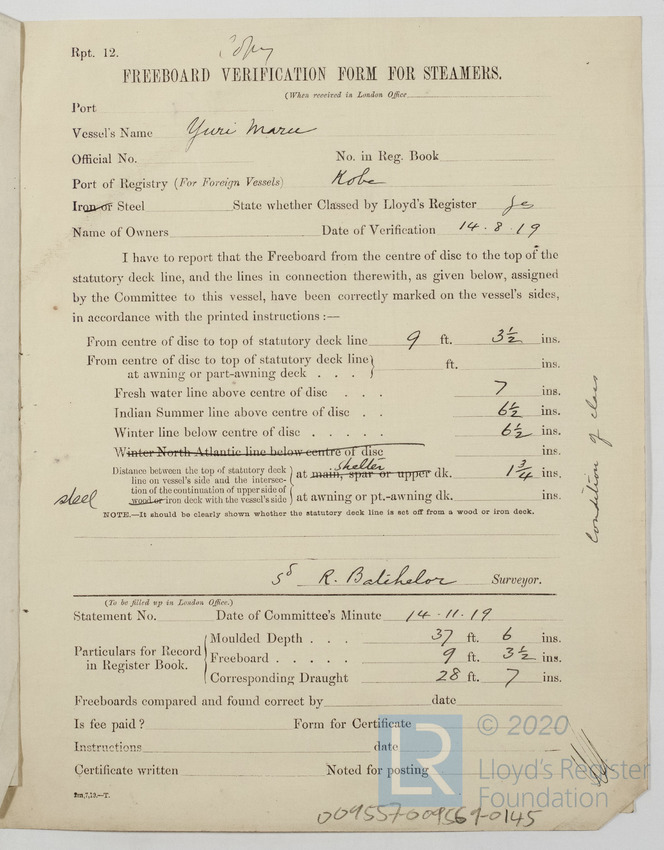 Rpt. 12.
Copy
FREEBOARD VERIFICATION FORM FOR STEAMERS.
(When received in London Office
Port
Vessel's Name Yuri Maru
Official No. No. in Reg. Book
Port of Registry (For Foreign Vessels) Kobe
Iron or Steel State whether Classed by Lloyd's Register
Name of Owners Date of Verification 14.8.19
I have to report that the Freeboard from the centre of disc to the top of the
statutory deck line, and the lines in connection therewith, as given below, assigned
by the Committee to this vessel, have been correctly marked on the vessel's sides,
in accordance with the printed instructions :—
From centre of disc to top of statutory deck line 9 ft. 3½ ins.
From centre of disc to top of statutory deck line
at awning or part-awning deck . . . ft. ins.
Fresh water line above centre of disc . . . 7 ins.
Indian Summer line above centre of disc . . 6½ ins.
Winter line below centre of disc . . . . . 6½ ins.
Winter North Atlantic line below centre of disc ins.
Distance between the top of statutory deck
line on vessel's side and the intersec-
tion of the continuation of upper side of
wood or iron deck with the vessel's side
steel
shelter
at main, spar or upper dk. 1¾ ins.
at awning or pt.-awning dk. ins.
NOTE.—It should be clearly shown whether the statutory deck line is set off from a wood or iron deck.
Condition of class
sd R. Batchelor Surveyor.
(To be filled up in London Office.)
Statement No. Date of Committee's Minute 14.11.19
Particulars for Record
in Register Book.
Moulded Depth . . . 37 ft. 6 ins.
Freeboard . . . . . 9 ft. 3½ ins.
Corresponding Draught 28 ft. 7 ins.
Freeboards compared and found correct by date
Is fee paid ? Form for Certificate
Instructions date
Certificate written Noted for posting
2m,7,19.—T.
LR © 2020
Lloyd's Register
Foundation
009557-009569-0145